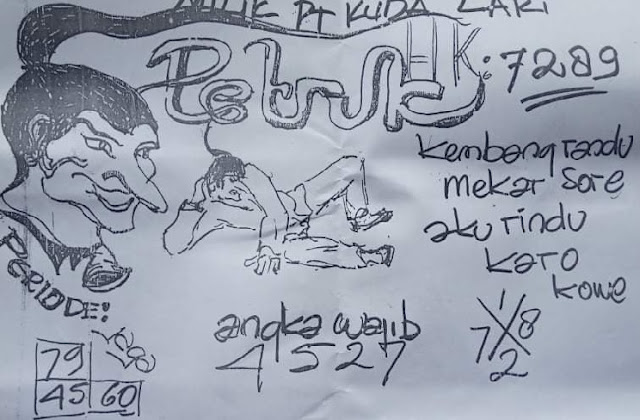 MILIK PT KUDA LARI
HK: 7289
Kembang randu
mekar sore
aku rindu
karo
kowe
PERIODE:
79
45 60
angka wajib
4 5 2 7
1
7 8
2